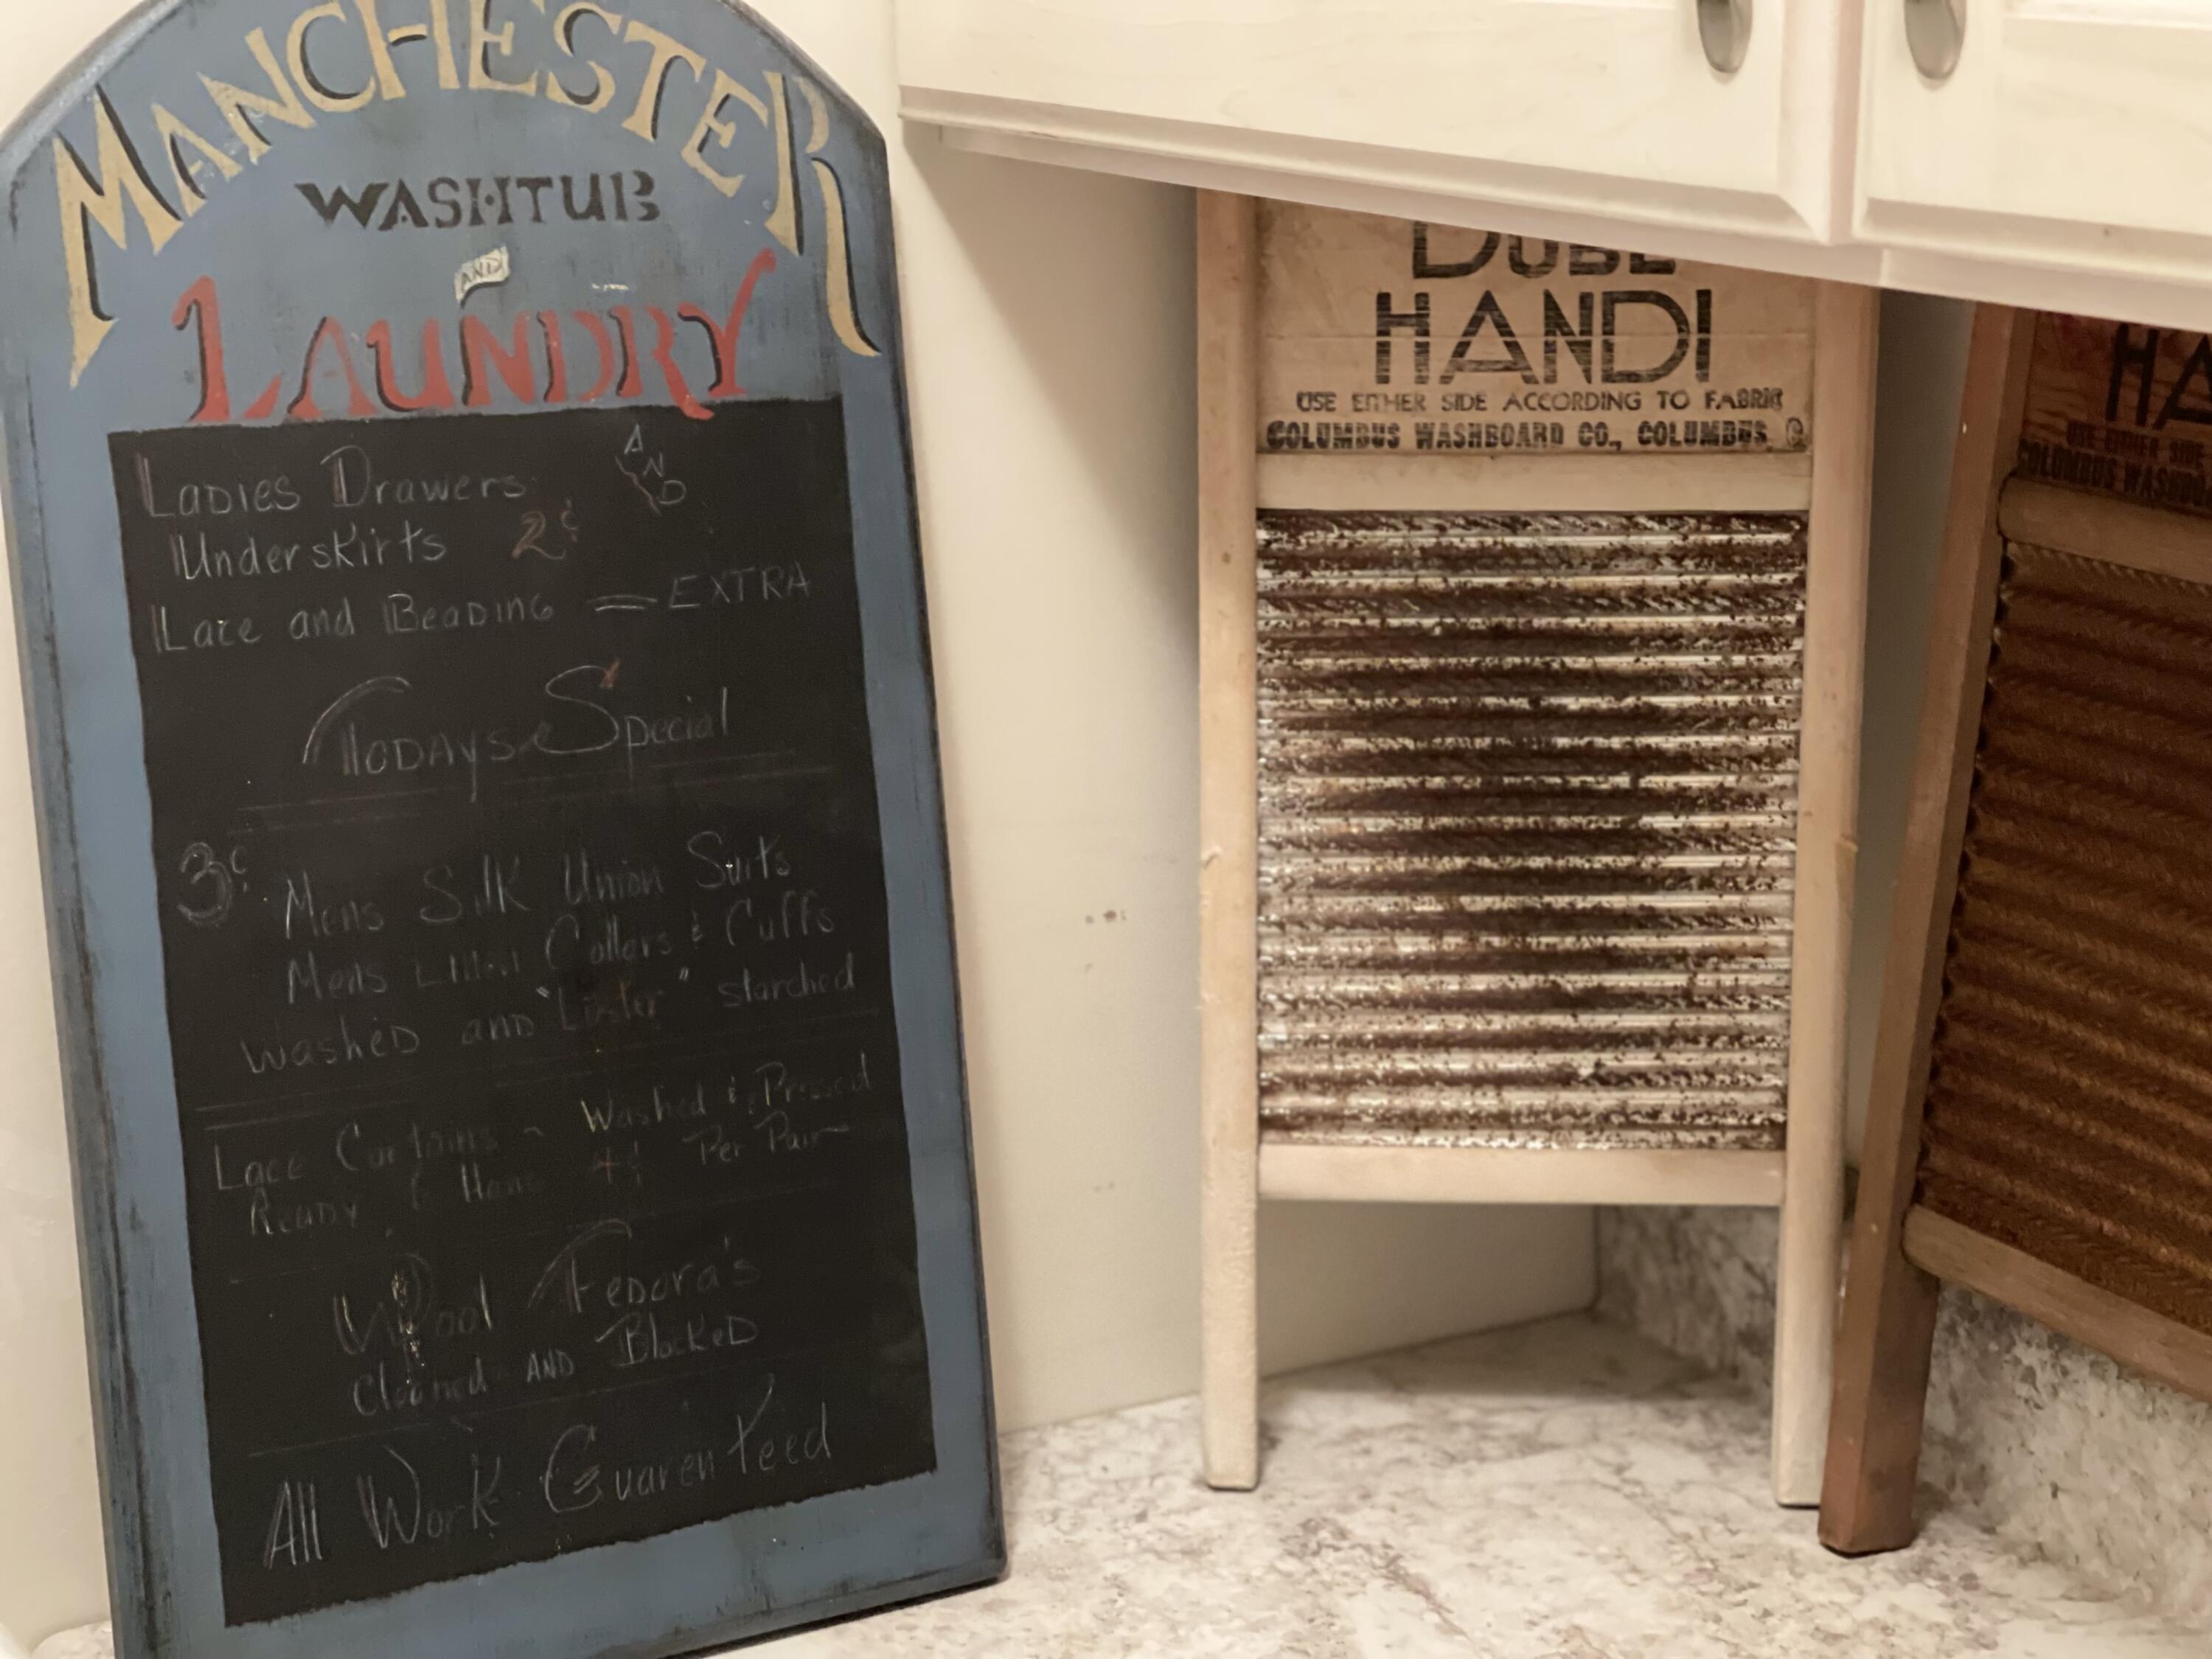 MANCHESTER
WASHTUB
AND
LAUNDRY
Ladies Drawers AND
Underskirts 2¢
Lace and Beading = EXTRA
Todays Special
3¢ Mens Silk Union Suits
Mens Collars & Cuffs
Washed and " " starched
Lace Curtains - Washed & Pressed
Ready Hang 4¢ Per Pair
Wool Fedora's
Cleaned AND Blocked
All Work Guarenteed
DUBL
HANDI
USE EITHER SIDE ACCORDING TO FABRIC
COLUMBUS WASHBOARD CO., COLUMBUS, O
HA
USE EITHER SIDE
COLUMBUS WASHBO